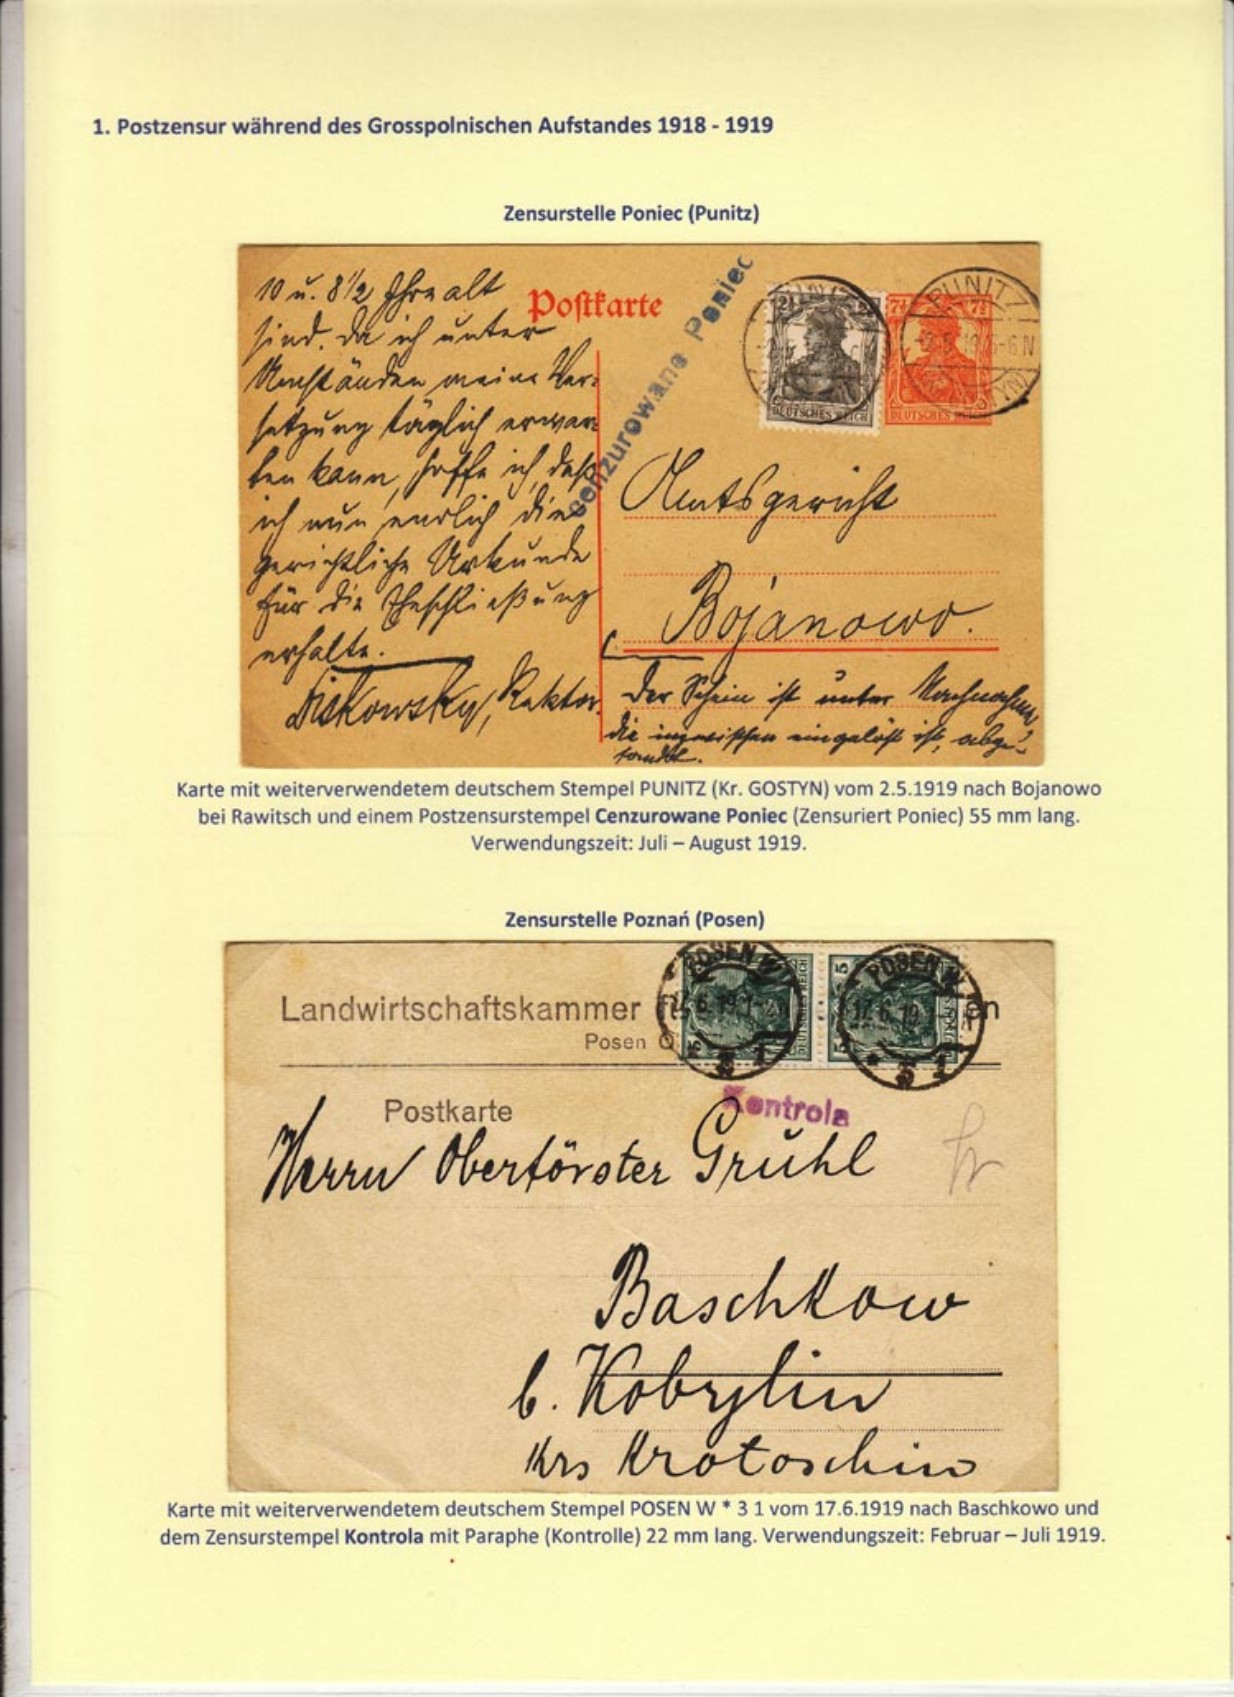 1. Postzensur während des Grosspolnischen Aufstandes 1918 - 1919
Zensurstelle Poniec (Punitz)
10 u. 8 1/2 Jhre alt
sind. Da ich unter
Umständen meine Ver-
setzung täglich erwar-
ten kann, hoffe ich, daß
ich nun endlich die
gerichtliche Urkunde
für die Eheschließung
erhalte.
Rektor.
Postkarte
Cenzurowane Poniec
DEUTSCHES REICH
7½ 7½
DEUTSCHES REICH
PUNITZ
Amtsgericht
Bojanowo.
Der Schein ist unter Nachnahme,
die inzwischen eingelöst ist, abge-
sandt.
Karte mit weiterverwendetem deutschem Stempel PUNITZ (Kr. GOSTYN) vom 2.5.1919 nach Bojanowo
bei Rawitsch und einem Postzensurstempel Cenzurowane Poniec (Zensuriert Poniec) 55 mm lang.
Verwendungszeit: Juli – August 1919.
Zensurstelle Poznań (Posen)
Landwirtschaftskammer
Posen O
POSEN W
17.6.19 1-2N
* 3 1
POSEN W
17.6.19 1-
* 3 1
Kontrola
Postkarte
Herrn Oberförster Grühl
Baschkow
b. Kobylin
Krs Krotoschin
Karte mit weiterverwendetem deutschem Stempel POSEN W * 3 1 vom 17.6.1919 nach Baschkowo und
dem Zensurstempel Kontrola mit Paraphe (Kontrolle) 22 mm lang. Verwendungszeit: Februar – Juli 1919.